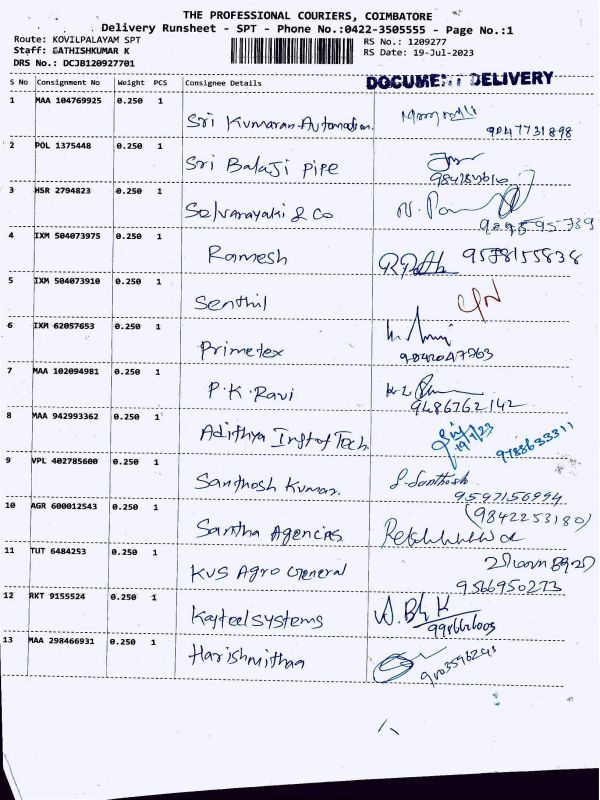 THE PROFESSIONAL COURIERS, COIMBATORE
Delivery Runsheet - SPT - Phone No.:0422-3505555 - Page No.:1
Route: KOVILPALAYAM SPT
RS No.: 1209277
Staff: SATHISHKUMAR K
RS Date: 19-Jul-2023
DRS No.: DCJB120927701
S No Consignment No Weight PCS Consignee Details
DOCUMENT DELIVERY
1 MAA 104769925 0.250 1 Sri Kumaran Automation
9047731898
2 POL 1375448 0.250 1 Sri Balaji Pipe
3 HSR 2794823 0.250 1 Selvanayaki & Co
4 IXM 504073975 0.250 1 Ramesh 9578155838
5 IXM 504073910 0.250 1 Senthil
6 IXM 62057653 0.250 1 Primetex
7 MAA 102094981 0.250 1 P.K.Ravi
9486762142
8 MAA 942993362 0.250 1 Adithya Inst of Tech
19/7/23 9788633311
9 VPL 402785600 0.250 1 Santhosh Kumar. S. Santhosh
9597156994
10 AGR 600012543 0.250 1 Santha Agencies
(9842253180)
11 TUT 6484253 0.250 1 KVS Agro General
9566950273
12 RKT 9155524 0.250 1 Kayteel Systems
13 MAA 298466931 0.250 1 Harishmithaa